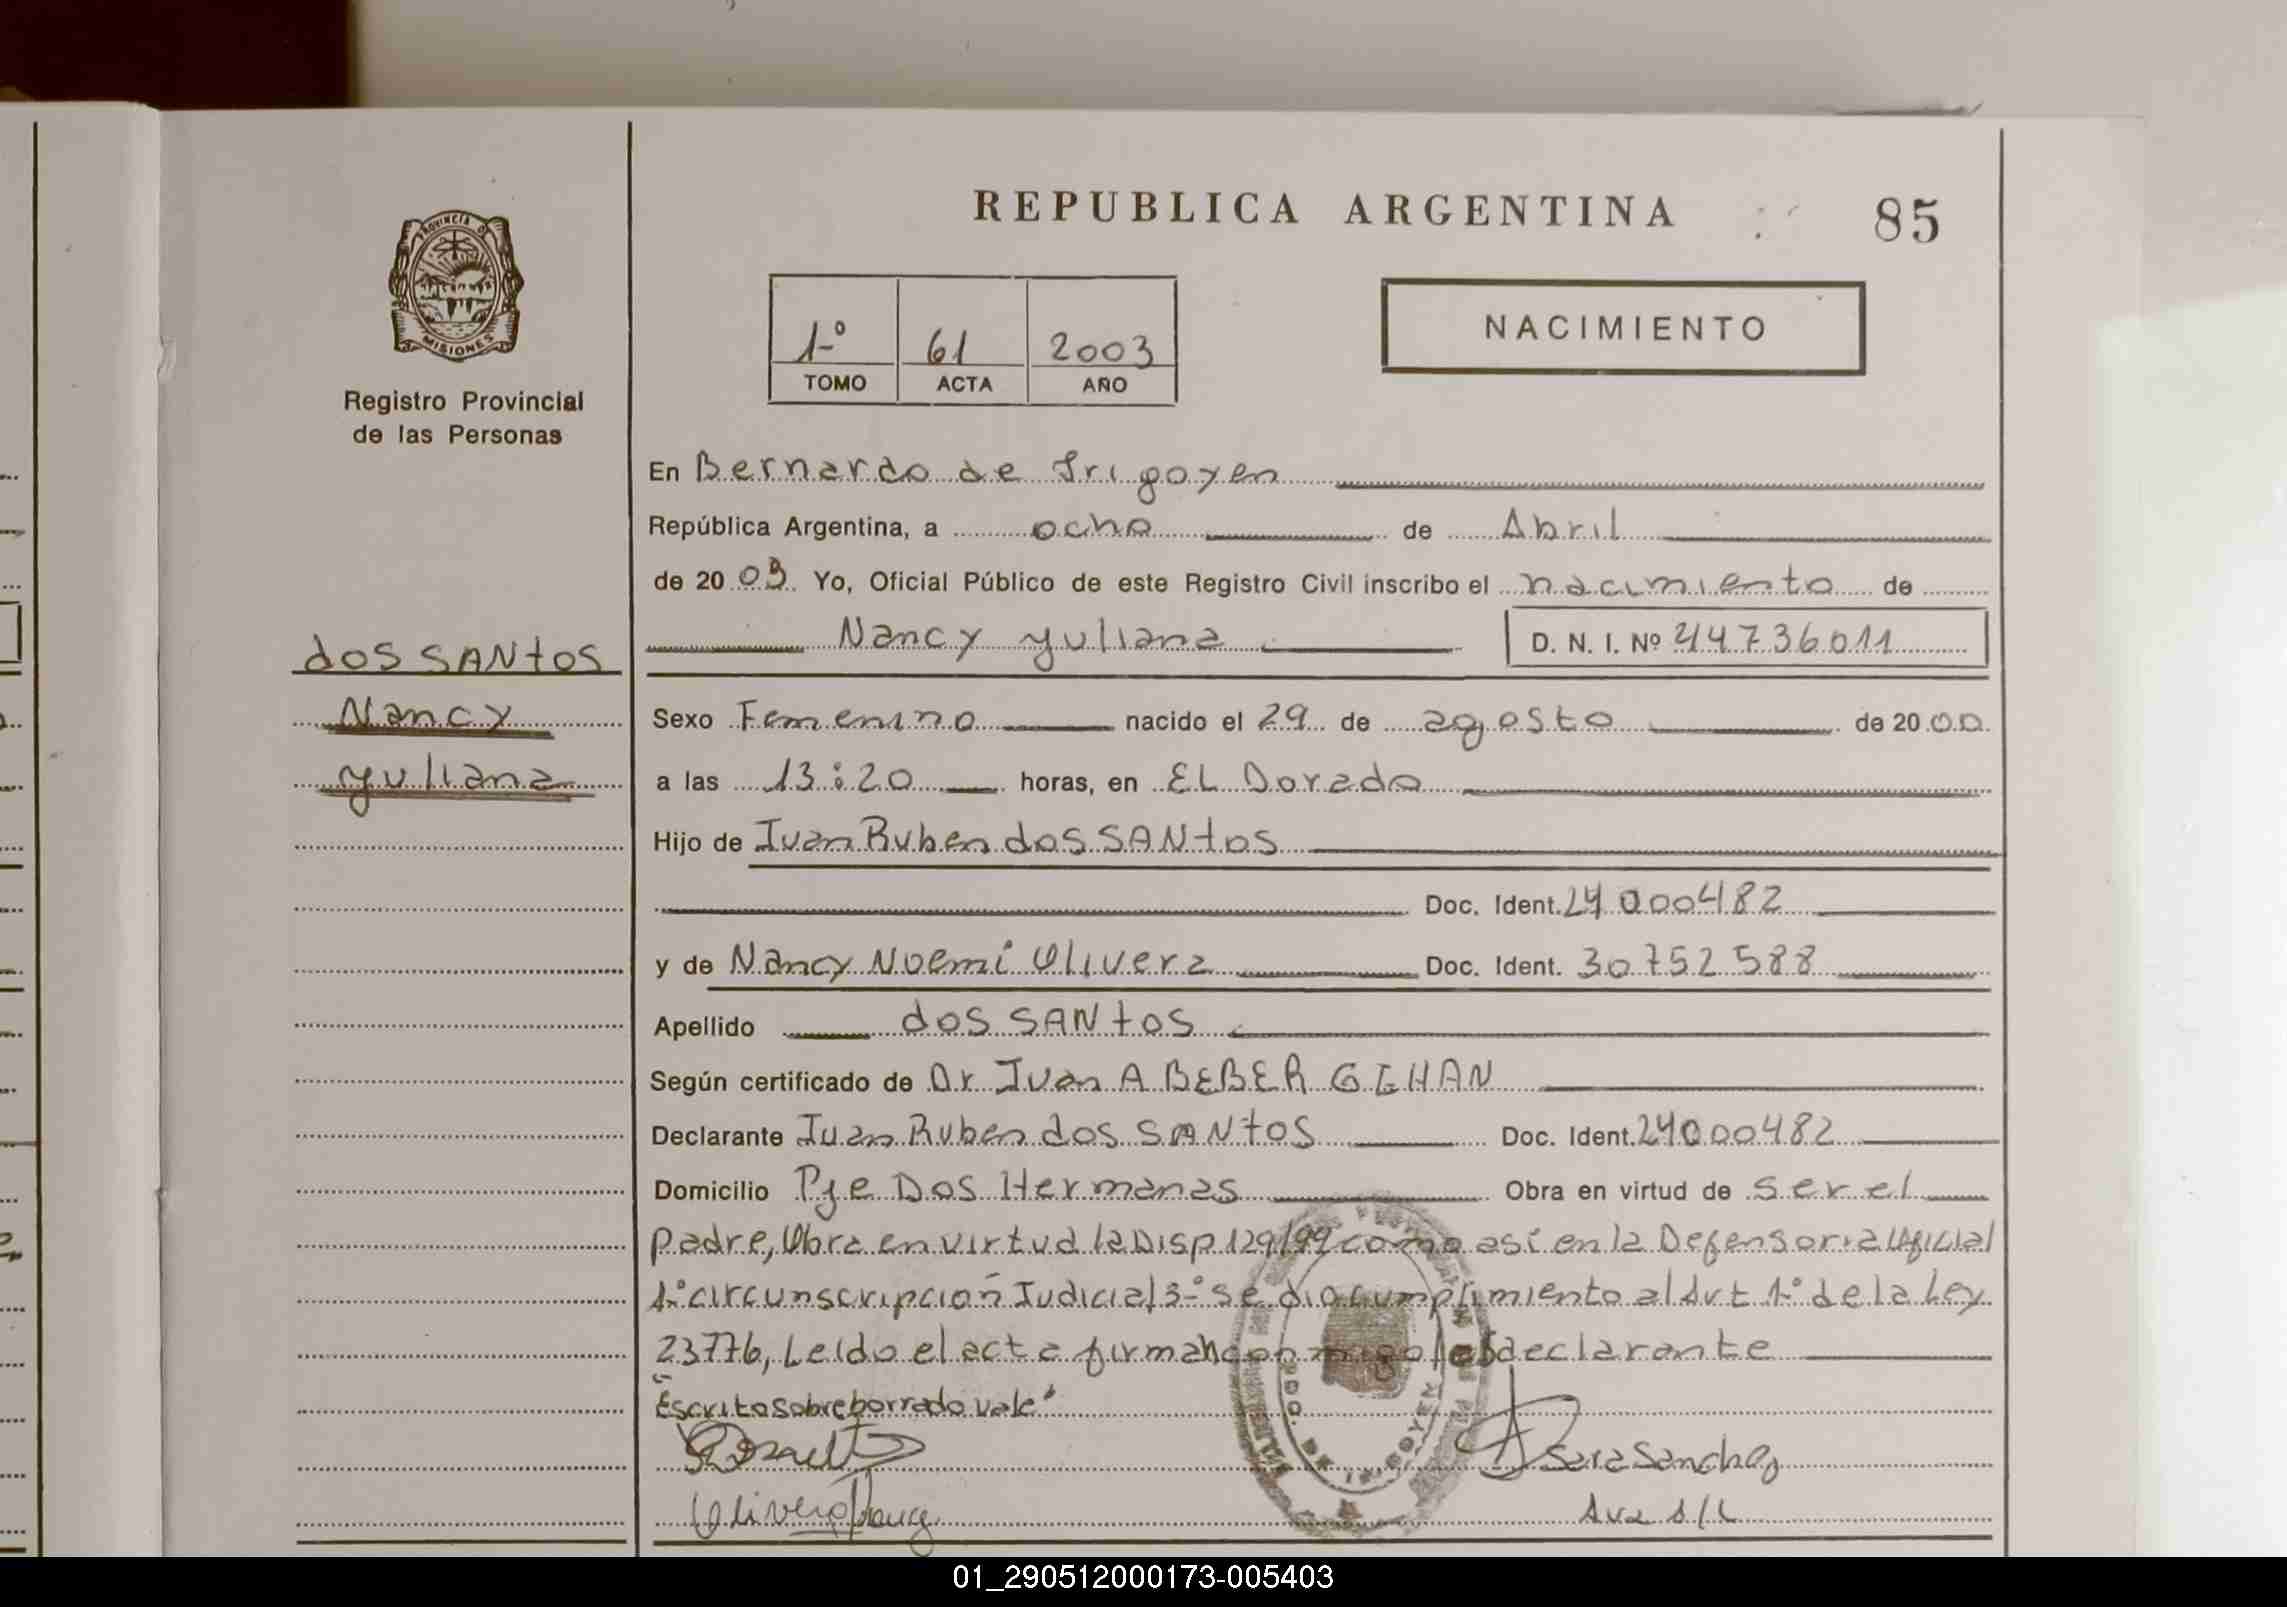 PROVINCIA D
MISIONES
Registro Provincial
de las Personas
dos SANtos
Nancy
Yuliana
REPUBLICA ARGENTINA
85
1º 61 2003
TOMO ACTA AÑO
NACIMIENTO
En Bernardo de Irigoyen
República Argentina, a ocho de Abril
de 20 03 Yo, Oficial Público de este Registro Civil inscribo el nacimiento de
Nancy Yuliana D. N. I. Nº 44736011
Sexo Femenino nacido el 29 de agosto de 20 00
a las 13:20 horas, en EL Dorado
Hijo de Juan Ruben dos SANtos
Doc. Ident. 24000482
y de Nancy Noemí Olivera Doc. Ident. 30752588
Apellido dos SANtos
Según certificado de Dr Juan A BEBER GEHAN
Declarante Juan Ruben dos SANtos Doc. Ident. 24000482
Domicilio Pje Dos Hermanas Obra en virtud de ser el
padre, Obra en virtud la Disp 129/99 como así en la Defensoria Oficial
1º circunscripción Judicial 3º se dio cumplimiento al Art 1º de la Ley
23776, Leído el acta firman conmigo declarante
"Escrito sobre borrado vale"
Sara Sanchez
Olivera Nancy
01_290512000173-005403